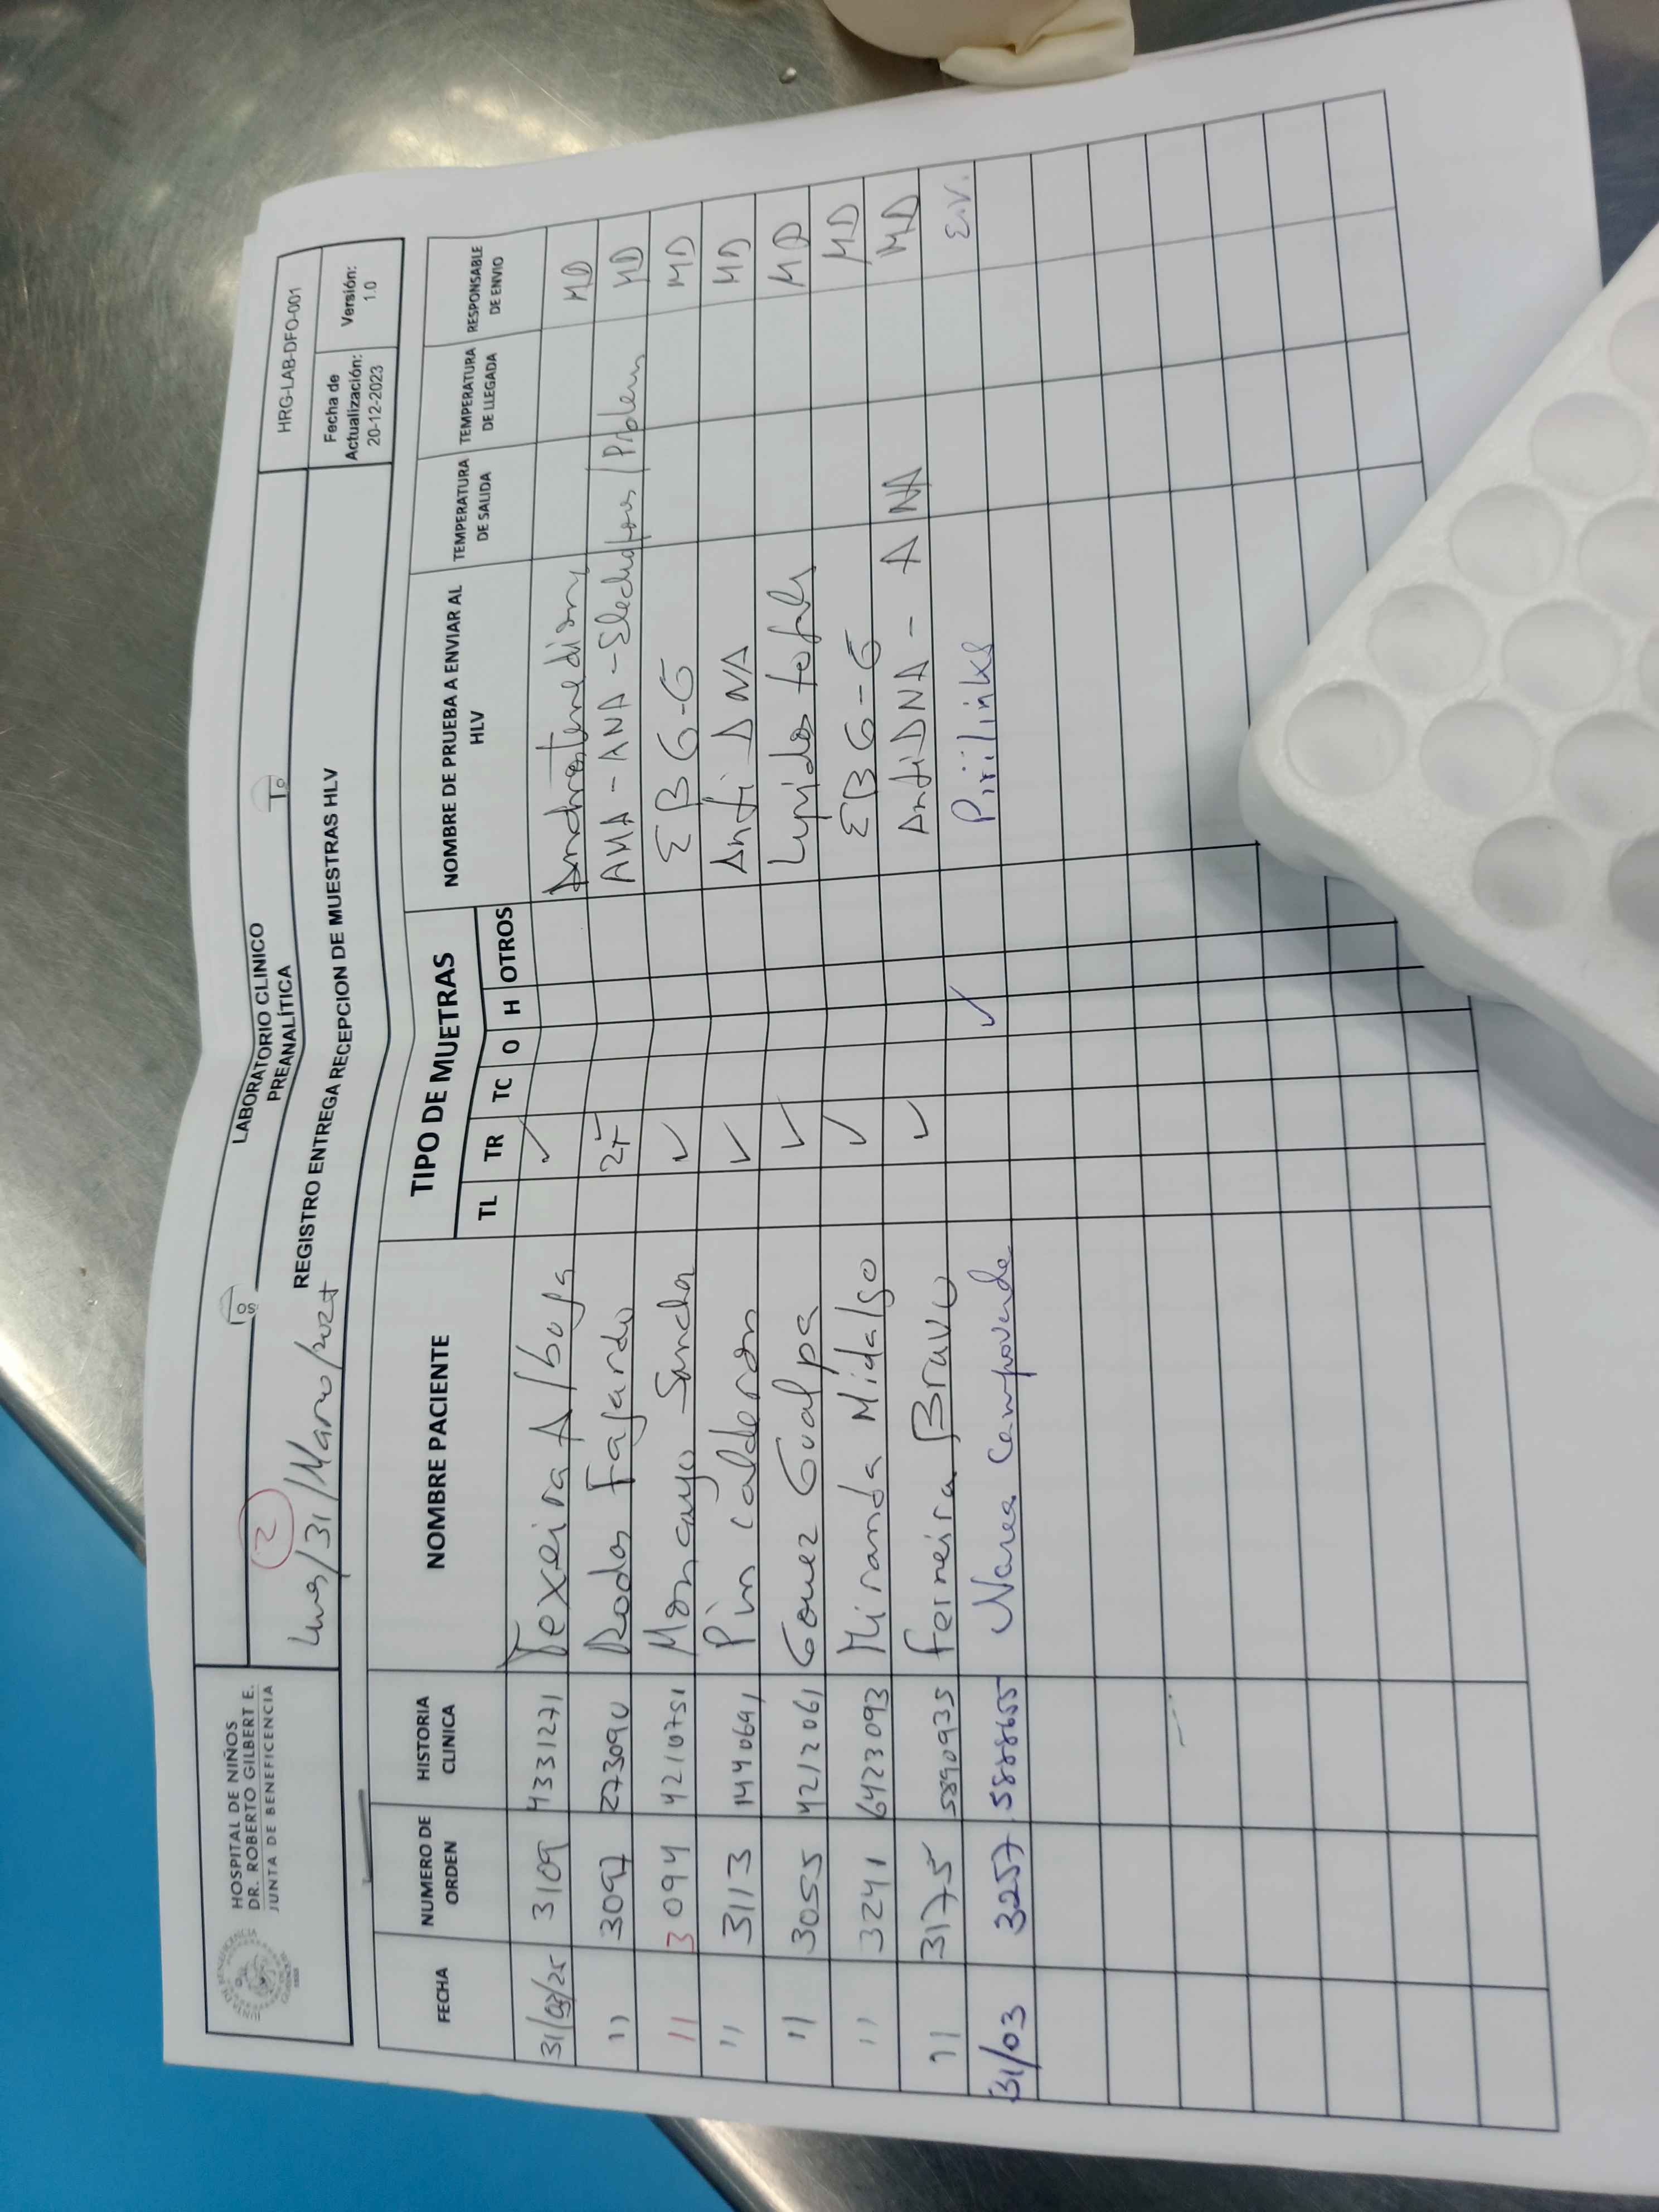 HOSPITAL DE NIÑOS
DR. ROBERTO GILBERT E.
JUNTA DE BENEFICENCIA
LABORATORIO CLINICO
PREANALÍTICA
HRG-LAB-DFO-001
2
31/Marzo/2025
REGISTRO ENTREGA RECEPCION DE MUESTRAS HLV
Fecha de Actualización: 20-12-2023
Versión: 1.0
FECHA NUMERO DE ORDEN HISTORIA CLINICA NOMBRE PACIENTE TIPO DE MUETRAS NOMBRE DE PRUEBA A ENVIAR AL HLV TEMPERATURA DE SALIDA TEMPERATURA DE LLEGADA RESPONSABLE DE ENVIO
TL TR TC O H OTROS
31/03/25 3109 4331271 Texeira ✓ MD
11 3097 Rodas Fajardo AMA - ANA - MD
11 3094 4210751 Moncayo Sanchez ✓ EBG-G MD
11 3113 Pin Calderon ✓ Anti DNA MD
11 3055 4212061 Gomez Gualpa ✓ MD
11 3241 6423093 Miranda Hidalgo ✓ EBG-G MD
11 3175 5890935 Ferneira Bravo ✓ AntiDNA - ANA MD
31/03 3257 5888655 Narea Campoverde ✓ Pirilinks E.V.